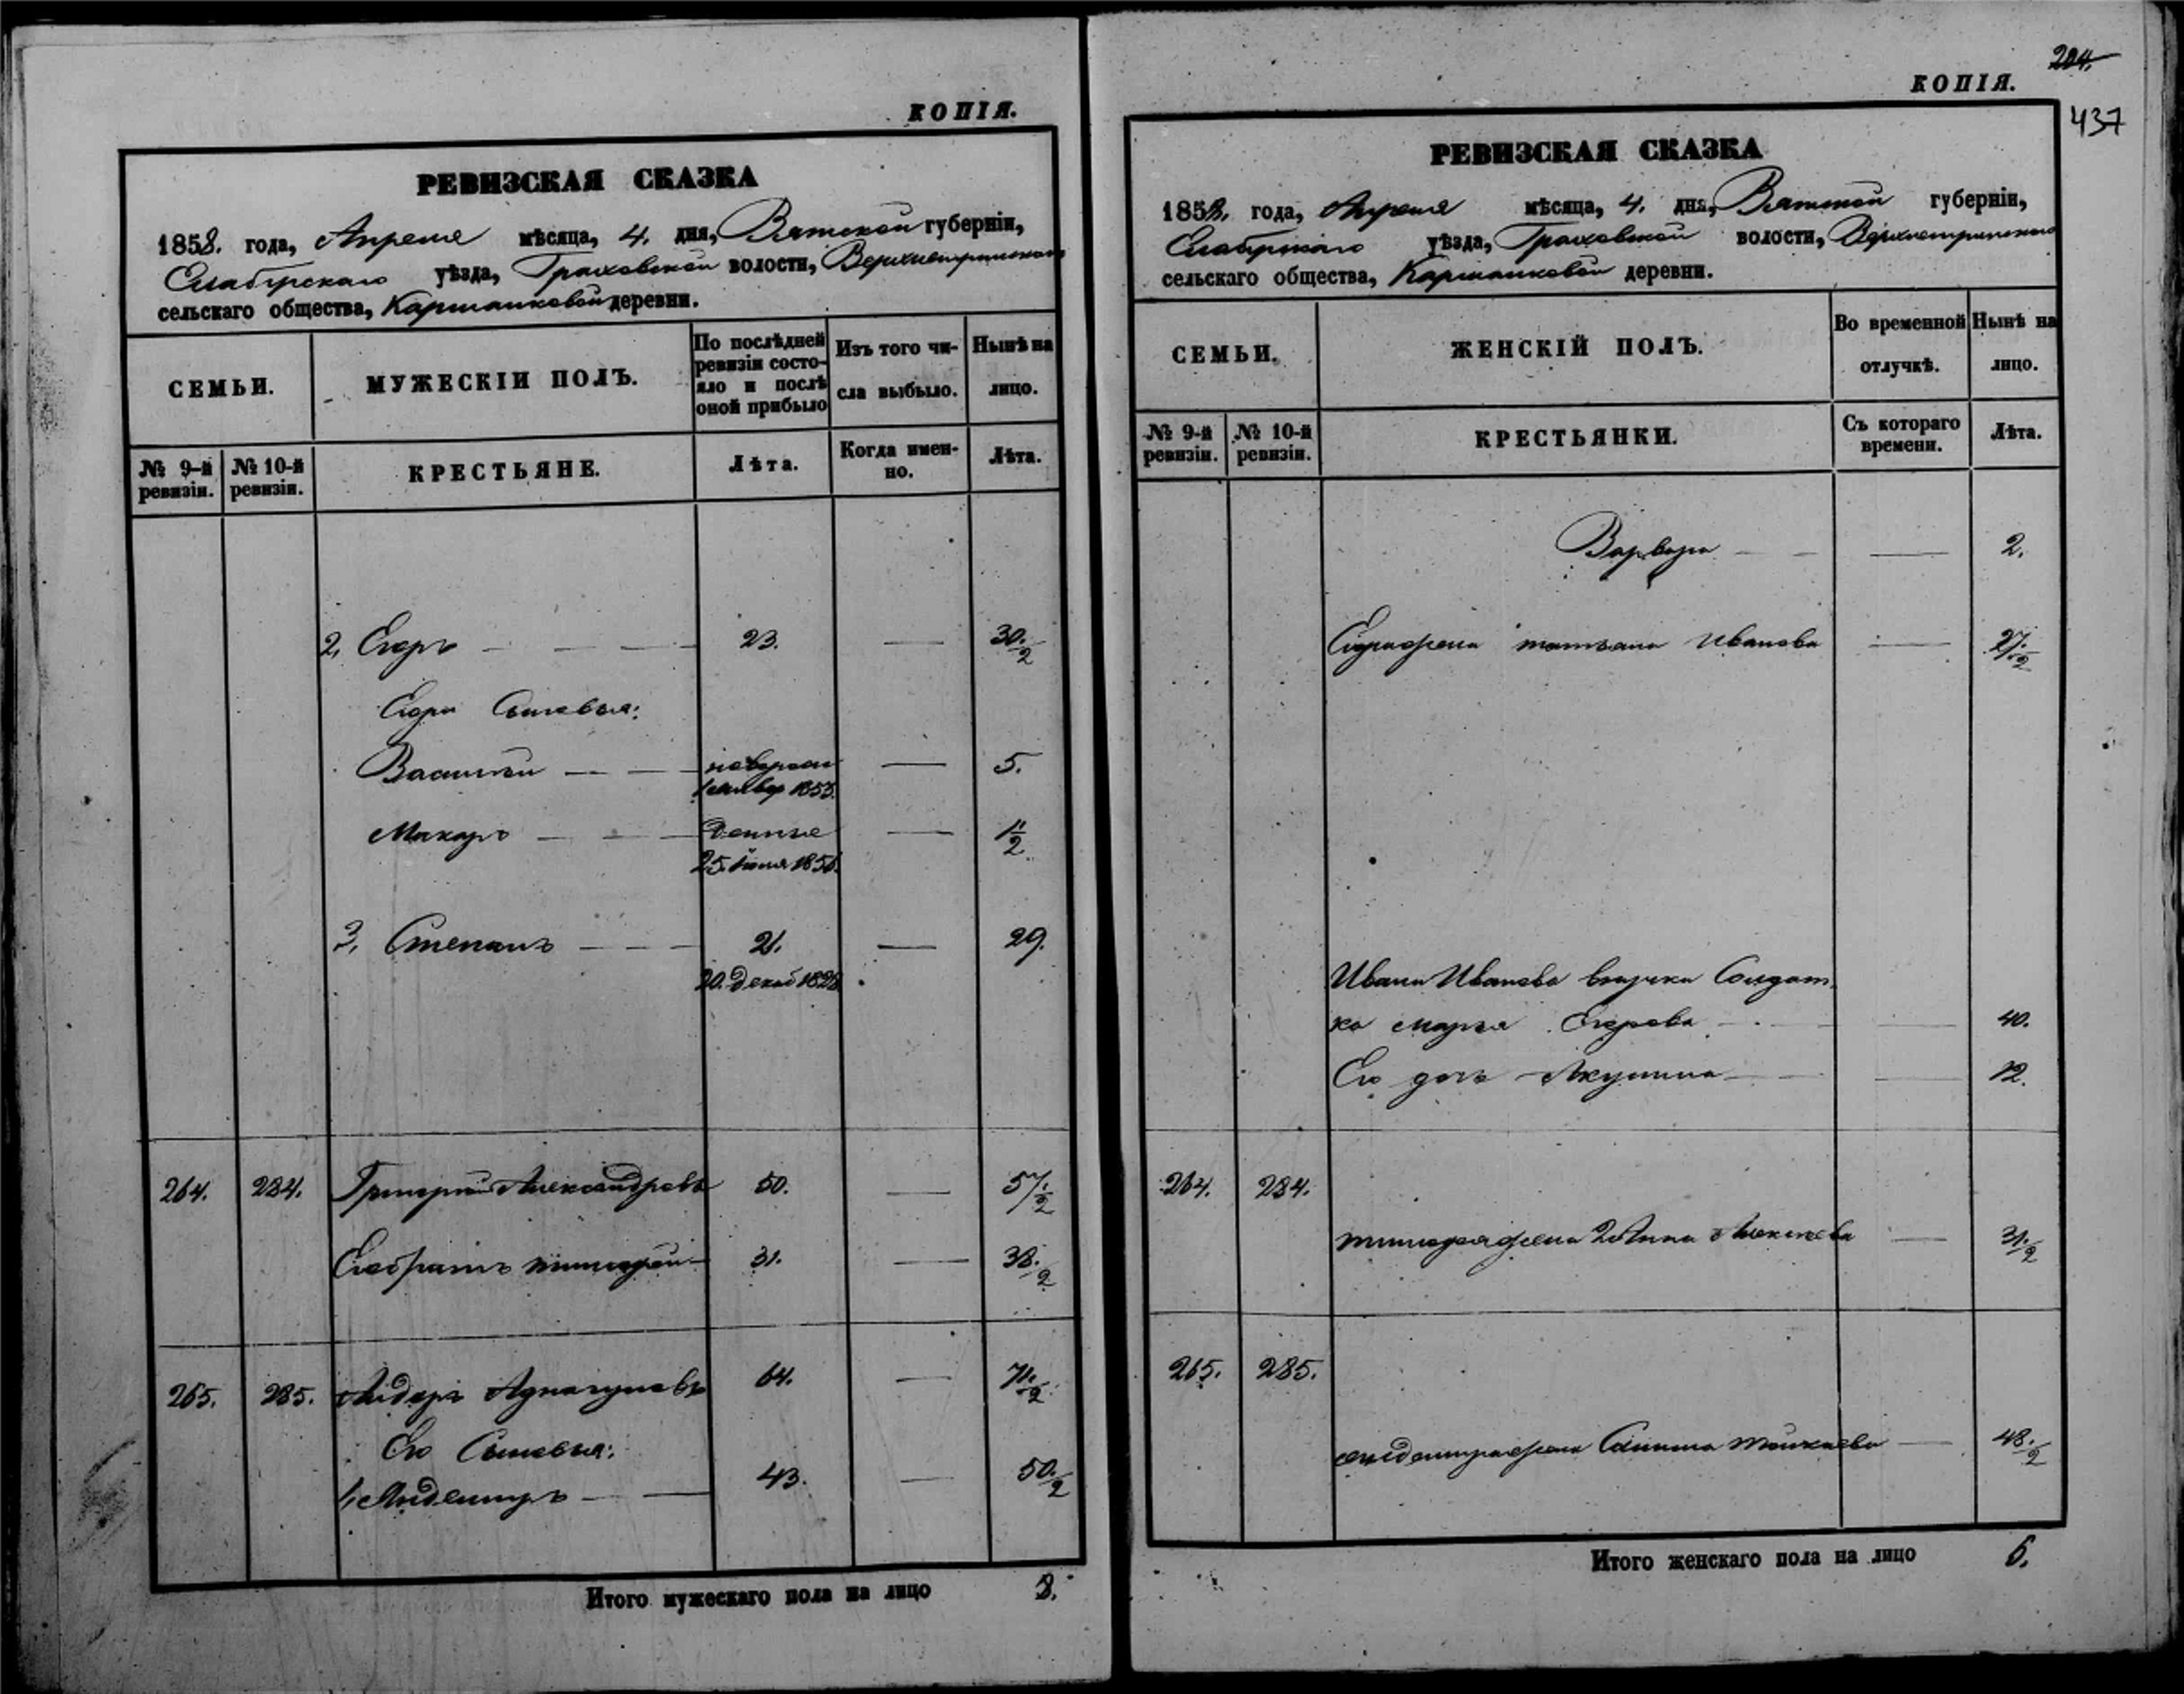 КОПІЯ.
РЕВИЗСКАЯ СКАЗКА
1858. года, Апреля мѣсяца, 4. дня, Вятской губерніи,
Елабугскаго уѣзда, Граховской волости,
сельскаго общества, деревни.
СЕМЬИ.
МУЖЕСКІЙ ПОЛЪ.
По послѣдней ревизіи состояло и послѣ оной прибыло
Изъ того числа выбыло.
Нынѣ на лицо.
№ 9-й ревизіи.
№ 10-й ревизіи.
КРЕСТЬЯНЕ.
Лѣта.
Когда именно.
Лѣта.
2, Егоръ — — — 23. — 30 1/2
Егора Сыновья:
Василий — — 1853. — 5.
Макаръ — — — 1 1/2
25. Июня 1856.
3, Степанъ — — 21. — 29.
20. Декаб 1828
264. 284. Григорий Александровъ 50. — 57 1/2
Его братъ Тимофей 31. — 38 1/2
265. 285. 64. — 71 1/2
Его Сыновья:
1, — — 43. — 50 1/2
Итого мужескаго пола на лицо 8.
204.
КОПІЯ.
437
РЕВИЗСКАЯ СКАЗКА
1858. года, Апреля мѣсяца, 4. дня, Вятской губерніи,
Елабугскаго уѣзда, Граховской волости,
сельскаго общества, деревни.
СЕМЬИ.
ЖЕНСКІЙ ПОЛЪ.
Во временной отлучкѣ.
Нынѣ на лицо.
№ 9-й ревизіи.
№ 10-й ревизіи.
КРЕСТЬЯНКИ.
Съ котораго времени.
Лѣта.
Варвара — — — 2.
Егора жена Татьяна Иванова — 27 1/2
Ивана Иванова внучка Солдат
ка Марья Егорова — — 40.
Ея дочь Акулина — — 12.
264. 284.
Тимофея жена 2 Анна Алексеева — 31 1/2
265. 285.
жена — 48 1/2
Итого женскаго пола на лицо 6.